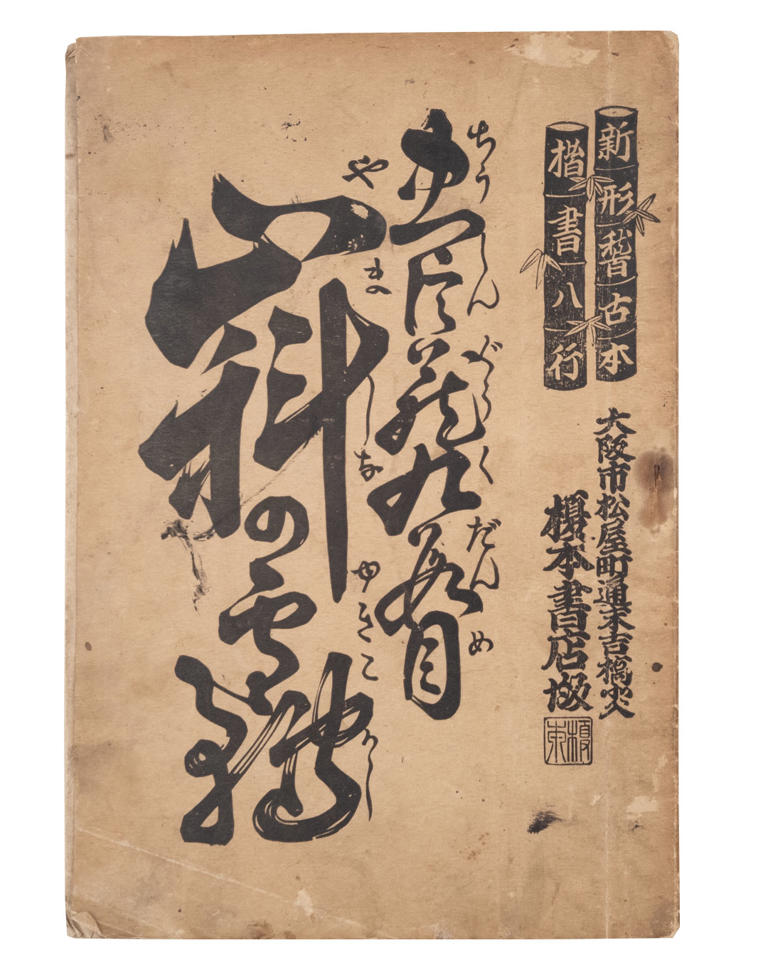 新形稽古本
楷書八行
大阪市松屋町通末吉橋北入
榎本書店
ちうしんぐらくだんめ
忠臣蔵九段目
やましなゆきこかし
山科の雪轉